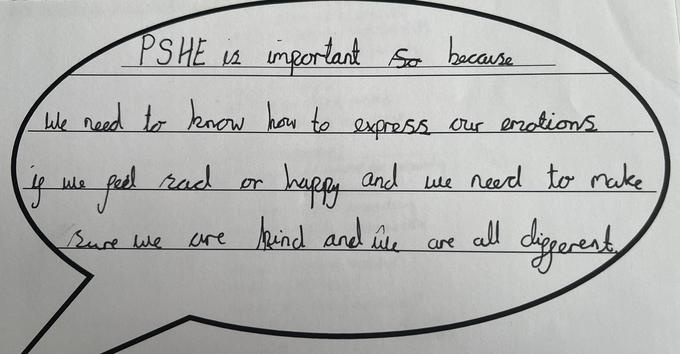 PSHE is important so because
We need to know how to express our emotions
if we feel sad or happy and we need to make
sure we are kind and we are all different.